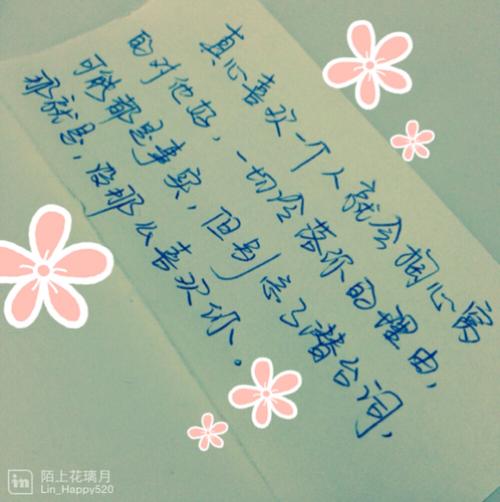 真心喜欢一个人就会掏心窝
的对他好，一切冷落你的理由，
可能都是事实，但别忘了潜台词，
那就是，没那么喜欢你。
in 陌上花璃月
Lin_Happy520